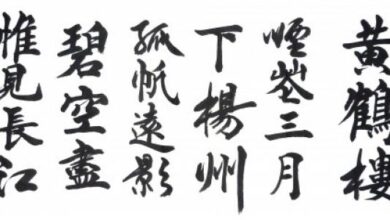 黄鶴樓
煙三月
下楊州
孤帆遠影
碧空盡
惟見長江